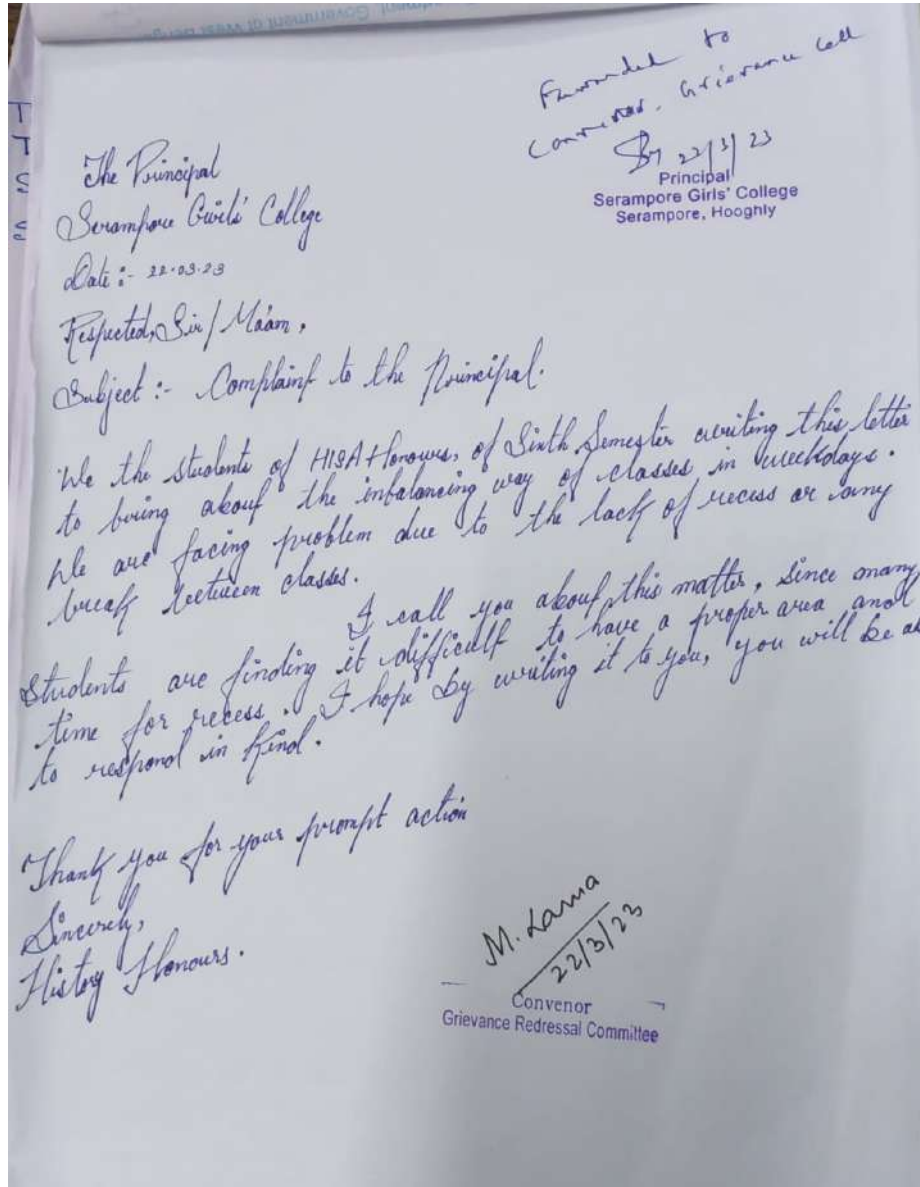 Forwarded to
Convenor, Grievance Cell
22/3/23
Principal
Serampore Girls' College
Serampore, Hooghly
The Principal
Serampore Girls' College
Date :- 22.03.23
Respected, Sir / Ma'am,
Subject :- Complaint to the Principal.
We the students of HISA Honours, of Sixth Semester writing this letter
to bring about the inbalancing way of classes in weekdays.
We are facing problem due to the lack of recess or any
break between classes.
I call you about this matter, since many
students are finding it difficult to have a proper area and
time for recess. I hope by writing it to you, you will be ab
to respond in kind.
Thank you for your prompt action
Sincerely,
History Honours.
M. Lama
22/3/23
Convenor
Grievance Redressal Committee